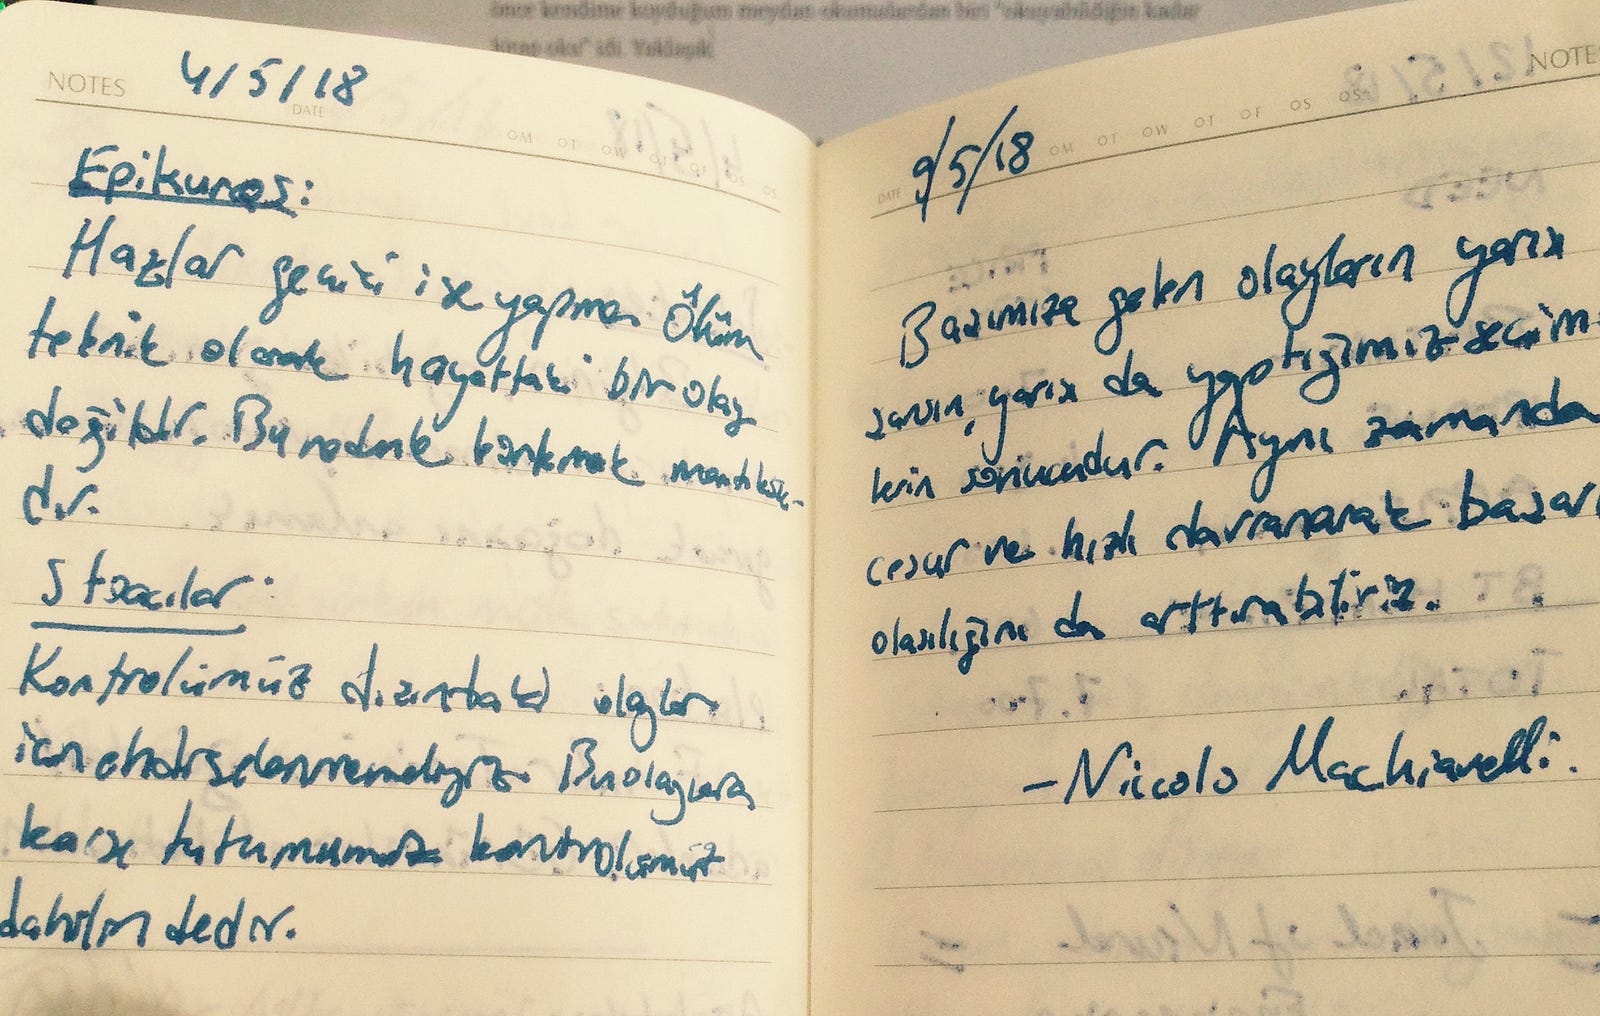 önce kendime koyduğum meydan okumalardan biri "okuyabildiğin kadar
kitap oku" idi. Yaklaşık
NOTES 4/5/18
DATE
Epikuros:
Hazlar geçici ise yapma. Ölüm
teknik olarak hayattaki bir olay
değildir. Bu nedenle korkmak mantıksız-
dır.
Stoacılar:
Kontrolümüz dışındaki olaylar
için endişelenmemeliyiz. Bu olaylara
karşı tutumumuz kontrolümüz
dahilindedir.
NOTES
DATE 9/5/18
Başımıza gelen olayların yarısı
şansın, yarısı da yaptığımız seçim-
lerin sonucudur. Aynı zamanda
cesur ve hızlı davranarak başarı
olasılığını da arttırabiliriz.
- Niccolo Machiavelli.